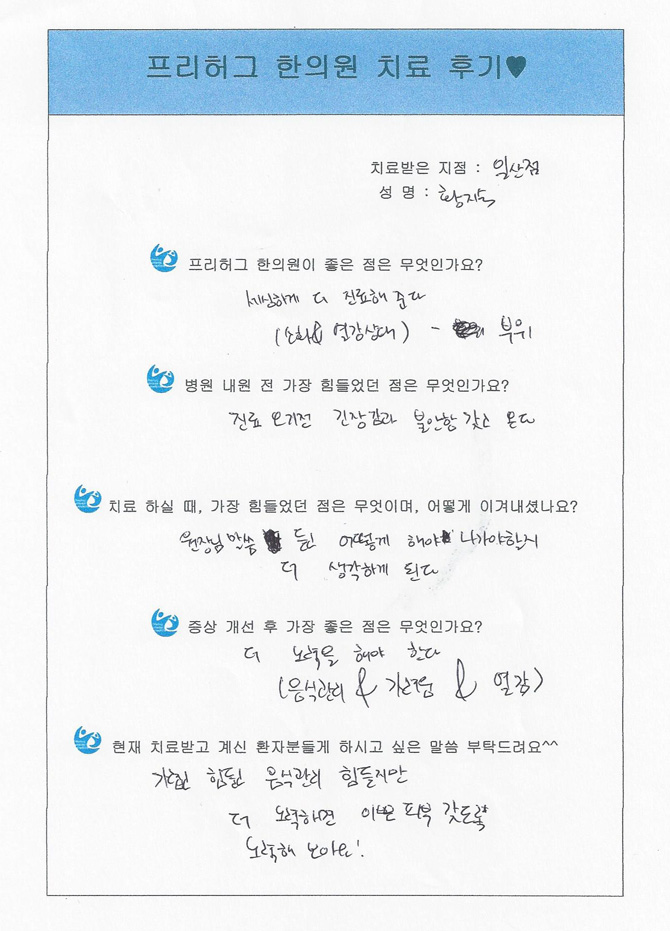 프리허그 한의원 치료 후기♥
치료받은 지점 : 일산점
성 명 : 황지숙
프리허그 한의원이 좋은 점은 무엇인가요?
세심하게 더 진료해 준다
(소화& 열감상태) - 부위
병원 내원 전 가장 힘들었던 점은 무엇인가요?
진료 오기전 긴장감과 불안함 갖고 온다
치료 하실 때, 가장 힘들었던 점은 무엇이며, 어떻게 이겨내셨나요?
원장님 말씀 듣고 어떻게 해야 나가야할지
더 생각하게 된다
증상 개선 후 가장 좋은 점은 무엇인가요?
더 노력을 해야 한다
(음식관리 & 가려움 & 열감)
현재 치료받고 계신 환자분들게 하시고 싶은 말씀 부탁드려요^^
힘든 음식관리 힘들지만
더 노력하면 이쁜 피부 갖도록
노력해 보아요!